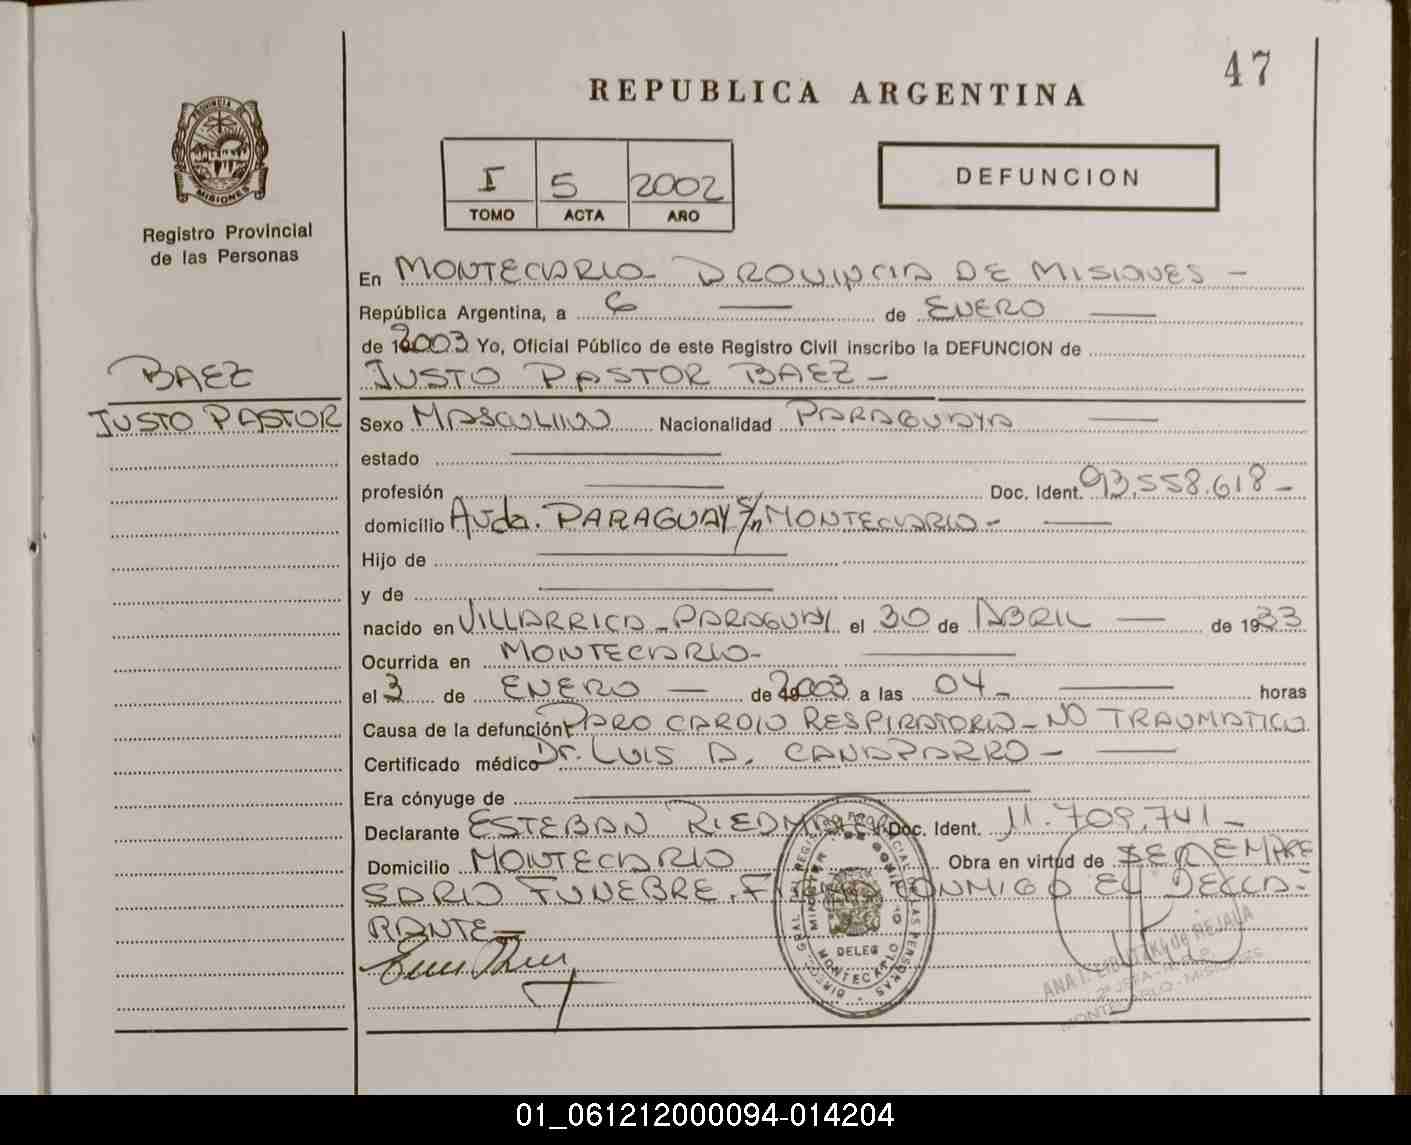 47
REPUBLICA ARGENTINA
PROVINCIA DE
MISIONES
Registro Provincial
de las Personas
I 5 2002
TOMO ACTA AÑO
DEFUNCION
En MONTECARLO - PROVINCIA DE MISIONES -
República Argentina, a 6 de ENERO
de 2003 Yo, Oficial Público de este Registro Civil inscribo la DEFUNCION de
JUSTO PASTOR BAEZ -
BAEZ
JUSTO PASTOR
Sexo MASCULINO Nacionalidad PARAGUAYA
estado
profesión Doc. Ident. 93.558.618 -
domicilio Avda. PARAGUAY S/n MONTECARLO -
Hijo de
y de
nacido en VILLARRICA - PARAGUAY el 30 de ABRIL de 1933
Ocurrida en MONTECARLO -
el 3 de ENERO de 2003 a las 04 - horas
Causa de la defunción PARO CARDIO RESPIRATORIO - NO TRAUMATICO
Certificado médico Dr. LUIS A. CANAPARRO -
Era cónyuge de
Declarante ESTEBAN Doc. Ident. 11.709.741 -
Domicilio MONTECARLO Obra en virtud de SER EMPRE
SARIO FUNEBRE. CONMIGO EL DECLA-
RANTE -
DELEG
MONTECARLO
MONTECARLO - MISIONES
01_061212000094-014204